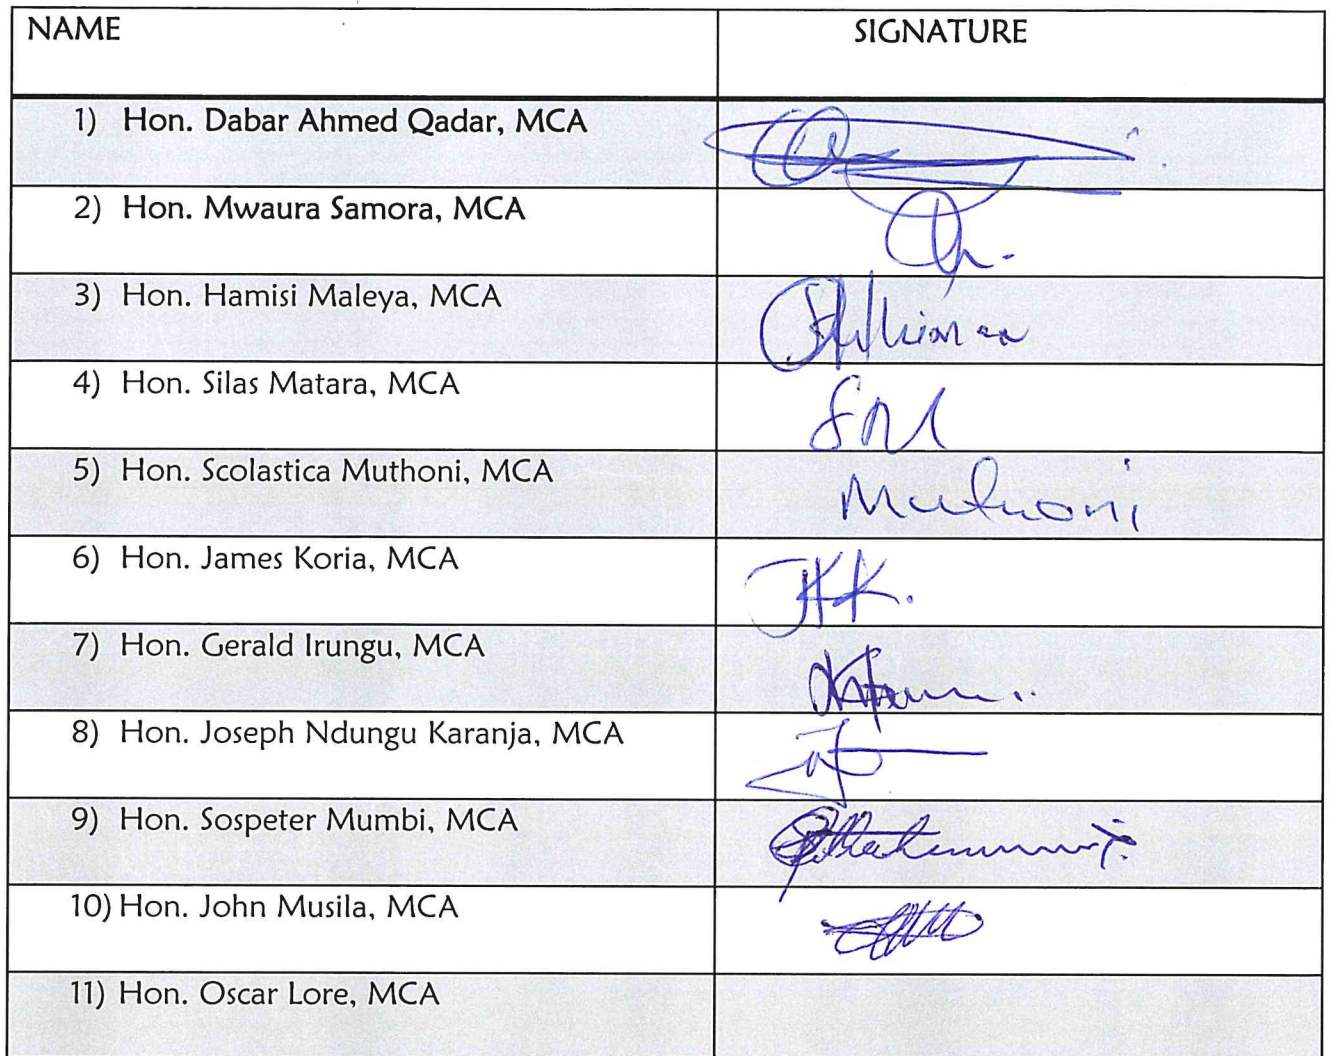 NAME SIGNATURE
1) Hon. Dabar Ahmed Qadar, MCA
2) Hon. Mwaura Samora, MCA
3) Hon. Hamisi Maleya, MCA
4) Hon. Silas Matara, MCA
5) Hon. Scolastica Muthoni, MCA Muthoni
6) Hon. James Koria, MCA JKK.
7) Hon. Gerald Irungu, MCA
8) Hon. Joseph Ndungu Karanja, MCA
9) Hon. Sospeter Mumbi, MCA
10) Hon. John Musila, MCA
11) Hon. Oscar Lore, MCA